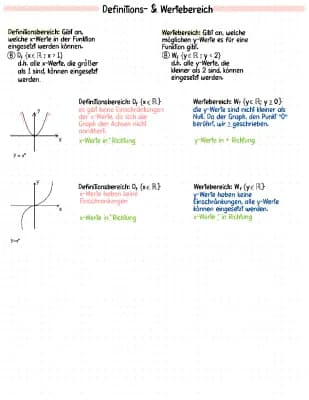 Definitions- & Wertebereich
Definitionsbereich: Gibt an,
welche x-Werte in der Funktion
eingesetzt werden können.
Ⓑ Df {x ∈ ℝ ; x > 1}
d.h. alle x-Werte, die größer
als 1 sind, können eingesetzt
werden.
Wertebereich: Gibt an, welche
möglichen y-Werte es für eine
Funktion gibt.
Ⓑ Wf {y ∈ ℝ ; y < 2}
d.h. alle y-Werte, die
kleiner als 2 sind, können
eingesetzt werden.
y
x
y = x²
Definitionsbereich: Df {x ∈ ℝ}
es gibt keine Einschränkungen
der x-Werte, da sich der
Graph den Achsen nicht
annähert.
x-Werte in Richtung
Wertebereich: Wf {y ∈ ℝ; y ≥ 0}
die y-Werte sind nicht kleiner als
Null. Da der Graph, den Punkt "0"
berührt, wir ≥ geschrieben.
y-Werte in + Richtung
y
x
y=x³
Definitionsbereich: Df {x ∈ ℝ}
x-Werte haben keine
Einschränkungen
x-Werte in Richtung
Wertebereich: Wf {y ∈ ℝ}
y-Werte haben keine
Einschränkungen, alle y-Werte
können eingesetzt werden.
x-Werte in Richtung